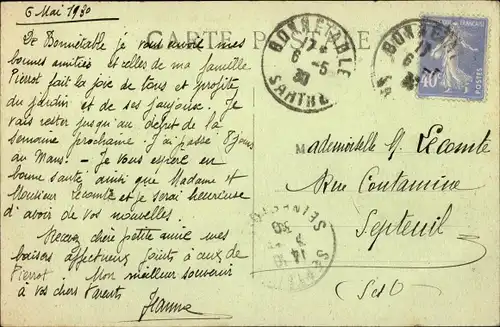 6 Mai 1930
CARTE POSTALE
De Bonnétable je vous envoie mes
bonnes amitiés et celles de ma famille
Pierrot fait la joie de tous et profite
du jardin et de ses joujoux. Je
vais rester jusqu'au début de la
semaine prochaine. J'ai passé 8 jours
au Mans - Je vous espère en
bonne santé ainsi que Madame et
Monsieur Lecomte et je serai heureuse
d'avoir de vos nouvelles.
Recevez chère petite amie mes
baisers affectueux joints à ceux de
Pierrot Mon meilleur souvenir
à vos chers Parents
Jeanne
BONNETABLE
17
6 -5
30
SARTHE
BONNETA
17
6
SA
40c
POSTES
Mademoiselle M. Lecomte
Rue Contamine
Septeuil
S et O
SEINE
14
7
30